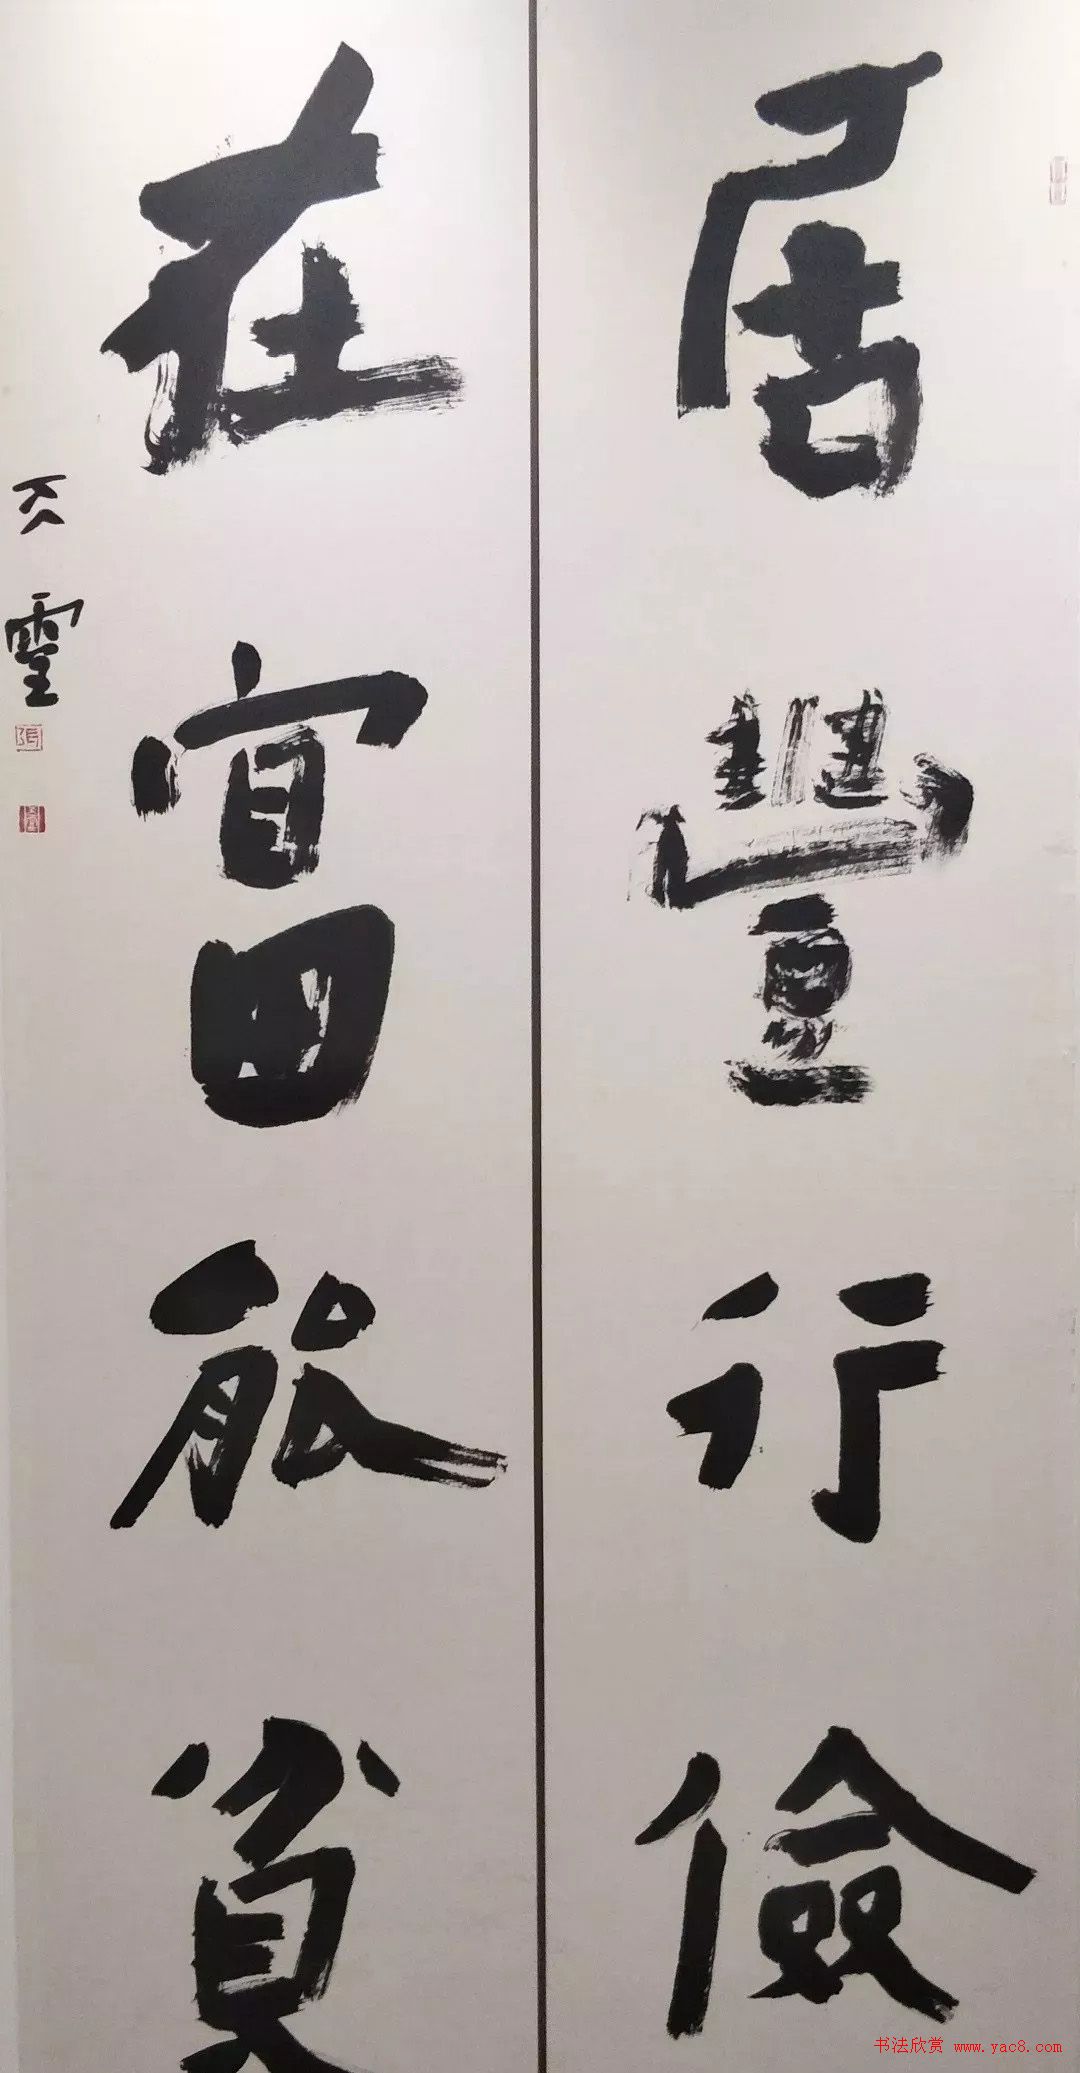 居豐行儉
在富能貧
天靈
书法欣赏 www.yac8.com